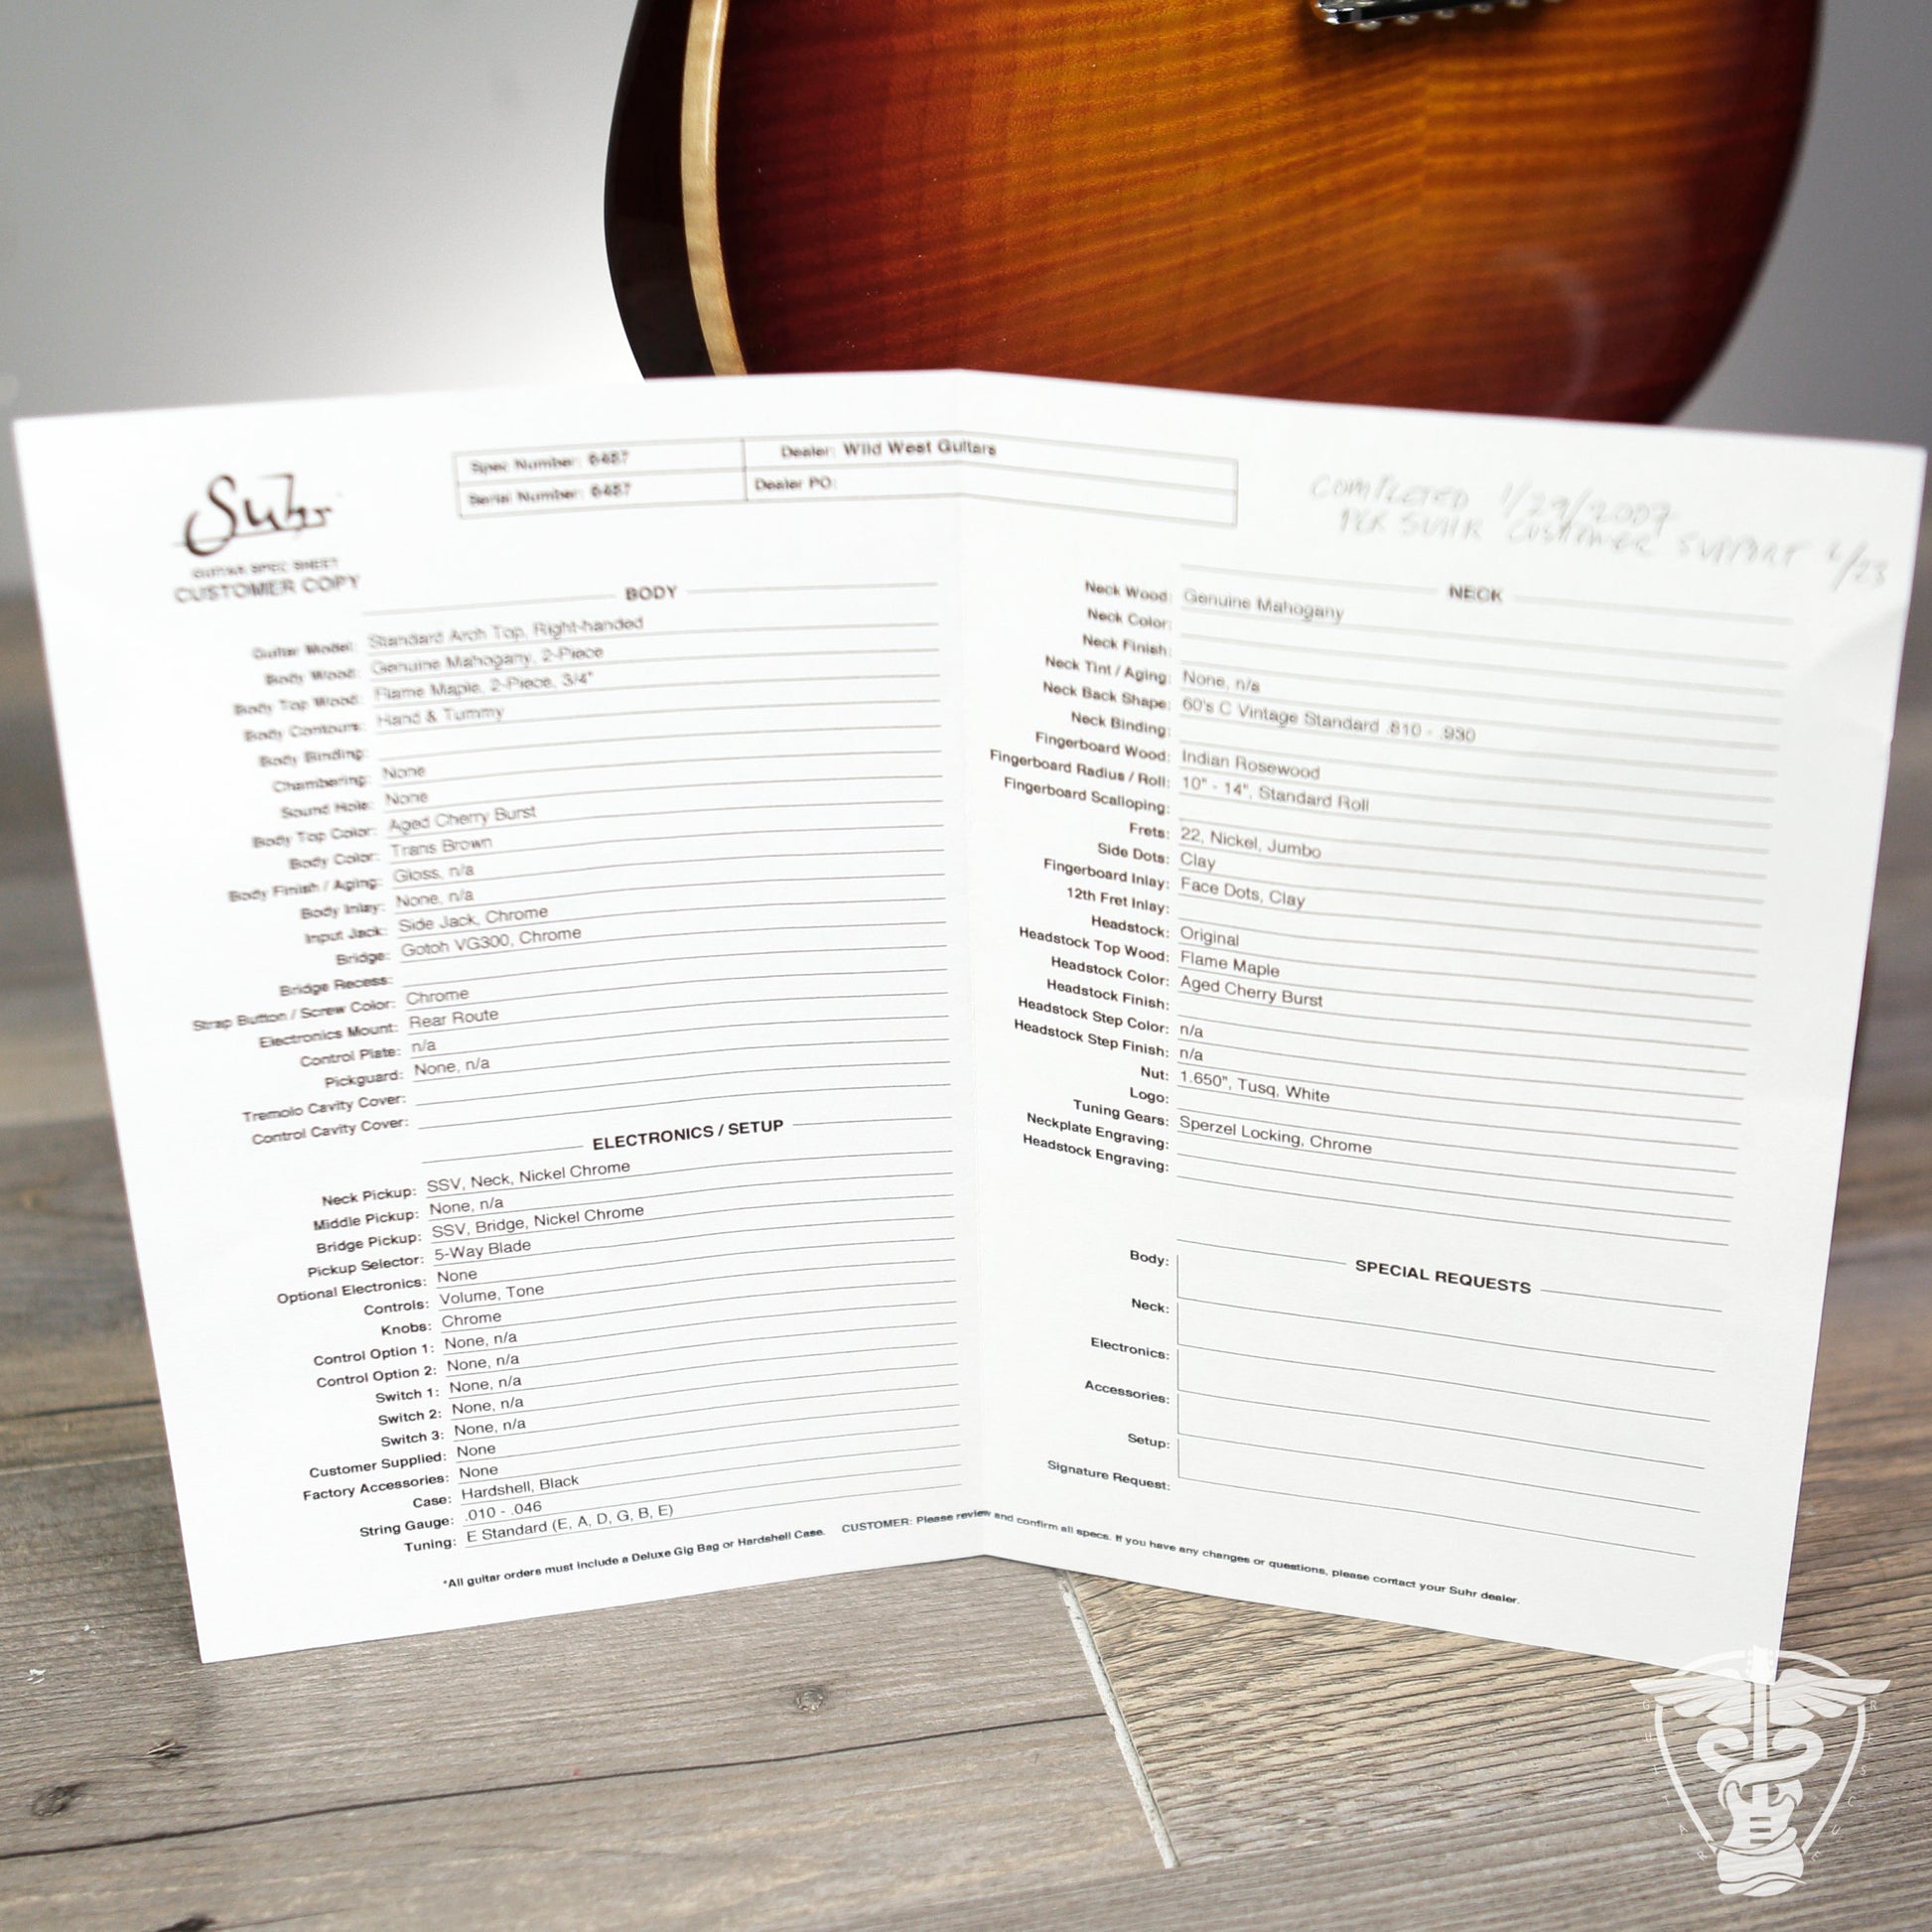 Suhr
GUITAR SPEC SHEET
CUSTOMER COPY
Spec Number: 6457
Serial Number: 6457
Dealer: Wild West Guitars
Dealer PO:
COMPLETED 1/29/2007
PER SUHR CUSTOMER SUPPORT /23
BODY
Guitar Model: Standard Arch Top, Right-handed
Body Wood: Genuine Mahogany, 2-Piece
Body Top Wood: Flame Maple, 2-Piece, 3/4"
Body Contours: Hand & Tummy
Body Binding:
Chambering: None
Sound Hole: None
Body Top Color: Aged Cherry Burst
Body Color: Trans Brown
Body Finish / Aging: Gloss, n/a
Body Inlay: None, n/a
Input Jack: Side Jack, Chrome
Bridge: Gotoh VG300, Chrome
Bridge Recess:
Strap Button / Screw Color: Chrome
Electronics Mount: Rear Route
Control Plate: n/a
Pickguard: None, n/a
Tremolo Cavity Cover:
Control Cavity Cover:
ELECTRONICS / SETUP
Neck Pickup: SSV, Neck, Nickel Chrome
Middle Pickup: None, n/a
Bridge Pickup: SSV, Bridge, Nickel Chrome
Pickup Selector: 5-Way Blade
Optional Electronics: None
Controls: Volume, Tone
Knobs: Chrome
Control Option 1: None, n/a
Control Option 2: None, n/a
Switch 1: None, n/a
Switch 2: None, n/a
Switch 3: None, n/a
Customer Supplied: None
Factory Accessories: None
Case: Hardshell, Black
String Gauge: .010 - .046
Tuning: E Standard (E, A, D, G, B, E)
NECK
Neck Wood: Genuine Mahogany
Neck Color:
Neck Finish:
Neck Tint / Aging: None, n/a
Neck Back Shape: 60's C Vintage Standard .810 - .930
Neck Binding:
Fingerboard Wood: Indian Rosewood
Fingerboard Radius / Roll: 10" - 14", Standard Roll
Fingerboard Scalloping:
Frets: 22, Nickel, Jumbo
Side Dots: Clay
Fingerboard Inlay: Face Dots, Clay
12th Fret Inlay:
Headstock: Original
Headstock Top Wood: Flame Maple
Headstock Color: Aged Cherry Burst
Headstock Finish:
Headstock Step Color: n/a
Headstock Step Finish: n/a
Nut: 1.650", Tusq, White
Logo:
Tuning Gears: Sperzel Locking, Chrome
Neckplate Engraving:
Headstock Engraving:
SPECIAL REQUESTS
Body:
Neck:
Electronics:
Accessories:
Setup:
Signature Request:
*All guitar orders must include a Deluxe Gig Bag or Hardshell Case. CUSTOMER: Please review and confirm all specs. If you have any changes or questions, please contact your Suhr dealer.
GUITAR RESCUE